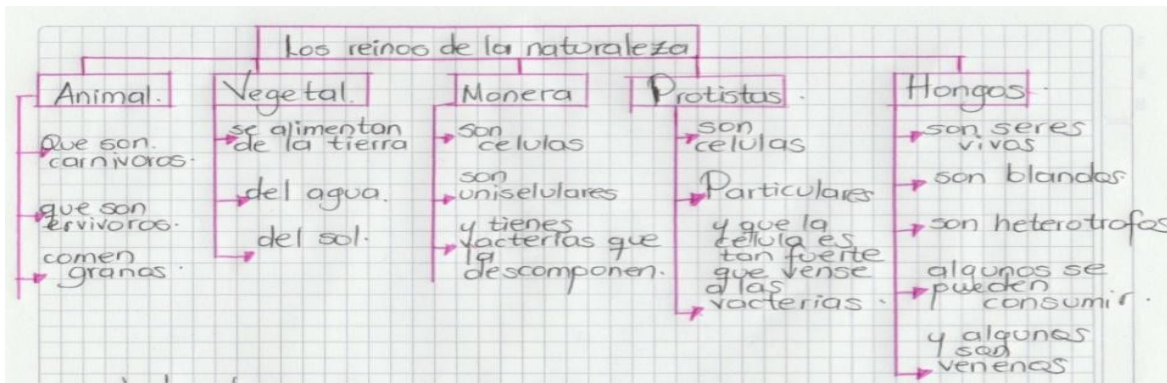 Los reinos de la naturaleza
Animal.
Que son.
carnivoros.
que son
ervivoros.
comen
granos.
Vegetal.
se alimentan
de la tierra
del agua.
del sol.
Monera
son
celulas
son
uniselulares
y tienes
vacterias que
la
descomponen.
Protistas.
son
celulas
Particulares
y que la
celula es
tan fuerte
que vense
a las
vacterias.
Hongos.
son seres
vivos
son blandos
son heterotrofos
algunos se
pueden
consumir.
y algunos
son
venenos